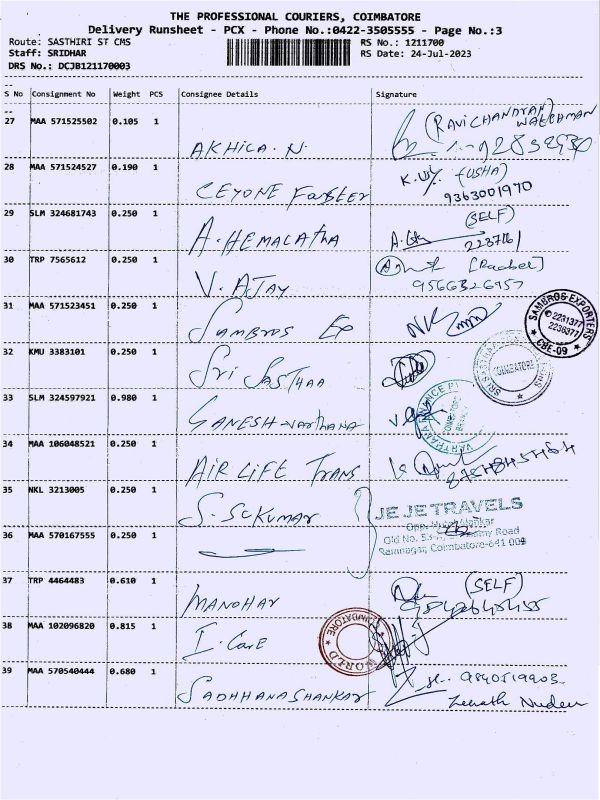 THE PROFESSIONAL COURIERS, COIMBATORE
Delivery Runsheet - PCX - Phone No.:0422-3505555 - Page No.:3
Route: SASTHIRI ST CMS
RS No.: 1211700
Staff: SRIDHAR
RS Date: 24-Jul-2023
DRS No.: DCJB121170003
S No Consignment No Weight PCS Consignee Details Signature
27 MAA 571525502 0.105 1 AKHILA. N. (RAVICHANDRAN) WATCHMAN
28 MAA 571524527 0.190 1 CEYONE (USHA)
9363001970
29 SLM 324681743 0.250 1 A. HEMALATHA (SELF)
30 TRP 7565612 0.250 1 V. AJAY
9566326957
31 MAA 571523451 0.250 1 SAMBROS EX
SAMBROS EXPORTERS
2231377
CBE-09
32 KMU 3383101 0.250 1 SRI SASTHAA
COIMBATORE
33 SLM 324597921 0.980 1 GANESH
34 MAA 106048521 0.250 1 AIR LIFE TRANS
35 NKL 3213005 0.250 1 S. SUKUMAR
JE JE TRAVELS
36 MAA 570167555 0.250 1
Old No. Road
Ramnagar, Coimbatore-641 009
37 TRP 4464483 0.610 1 MANOHAR (SELF)
38 MAA 102096820 0.815 1 I. Care
COIMBATORE
WORLD
39 MAA 570540444 0.680 1 SADHHANA SHANKAR 9840519903